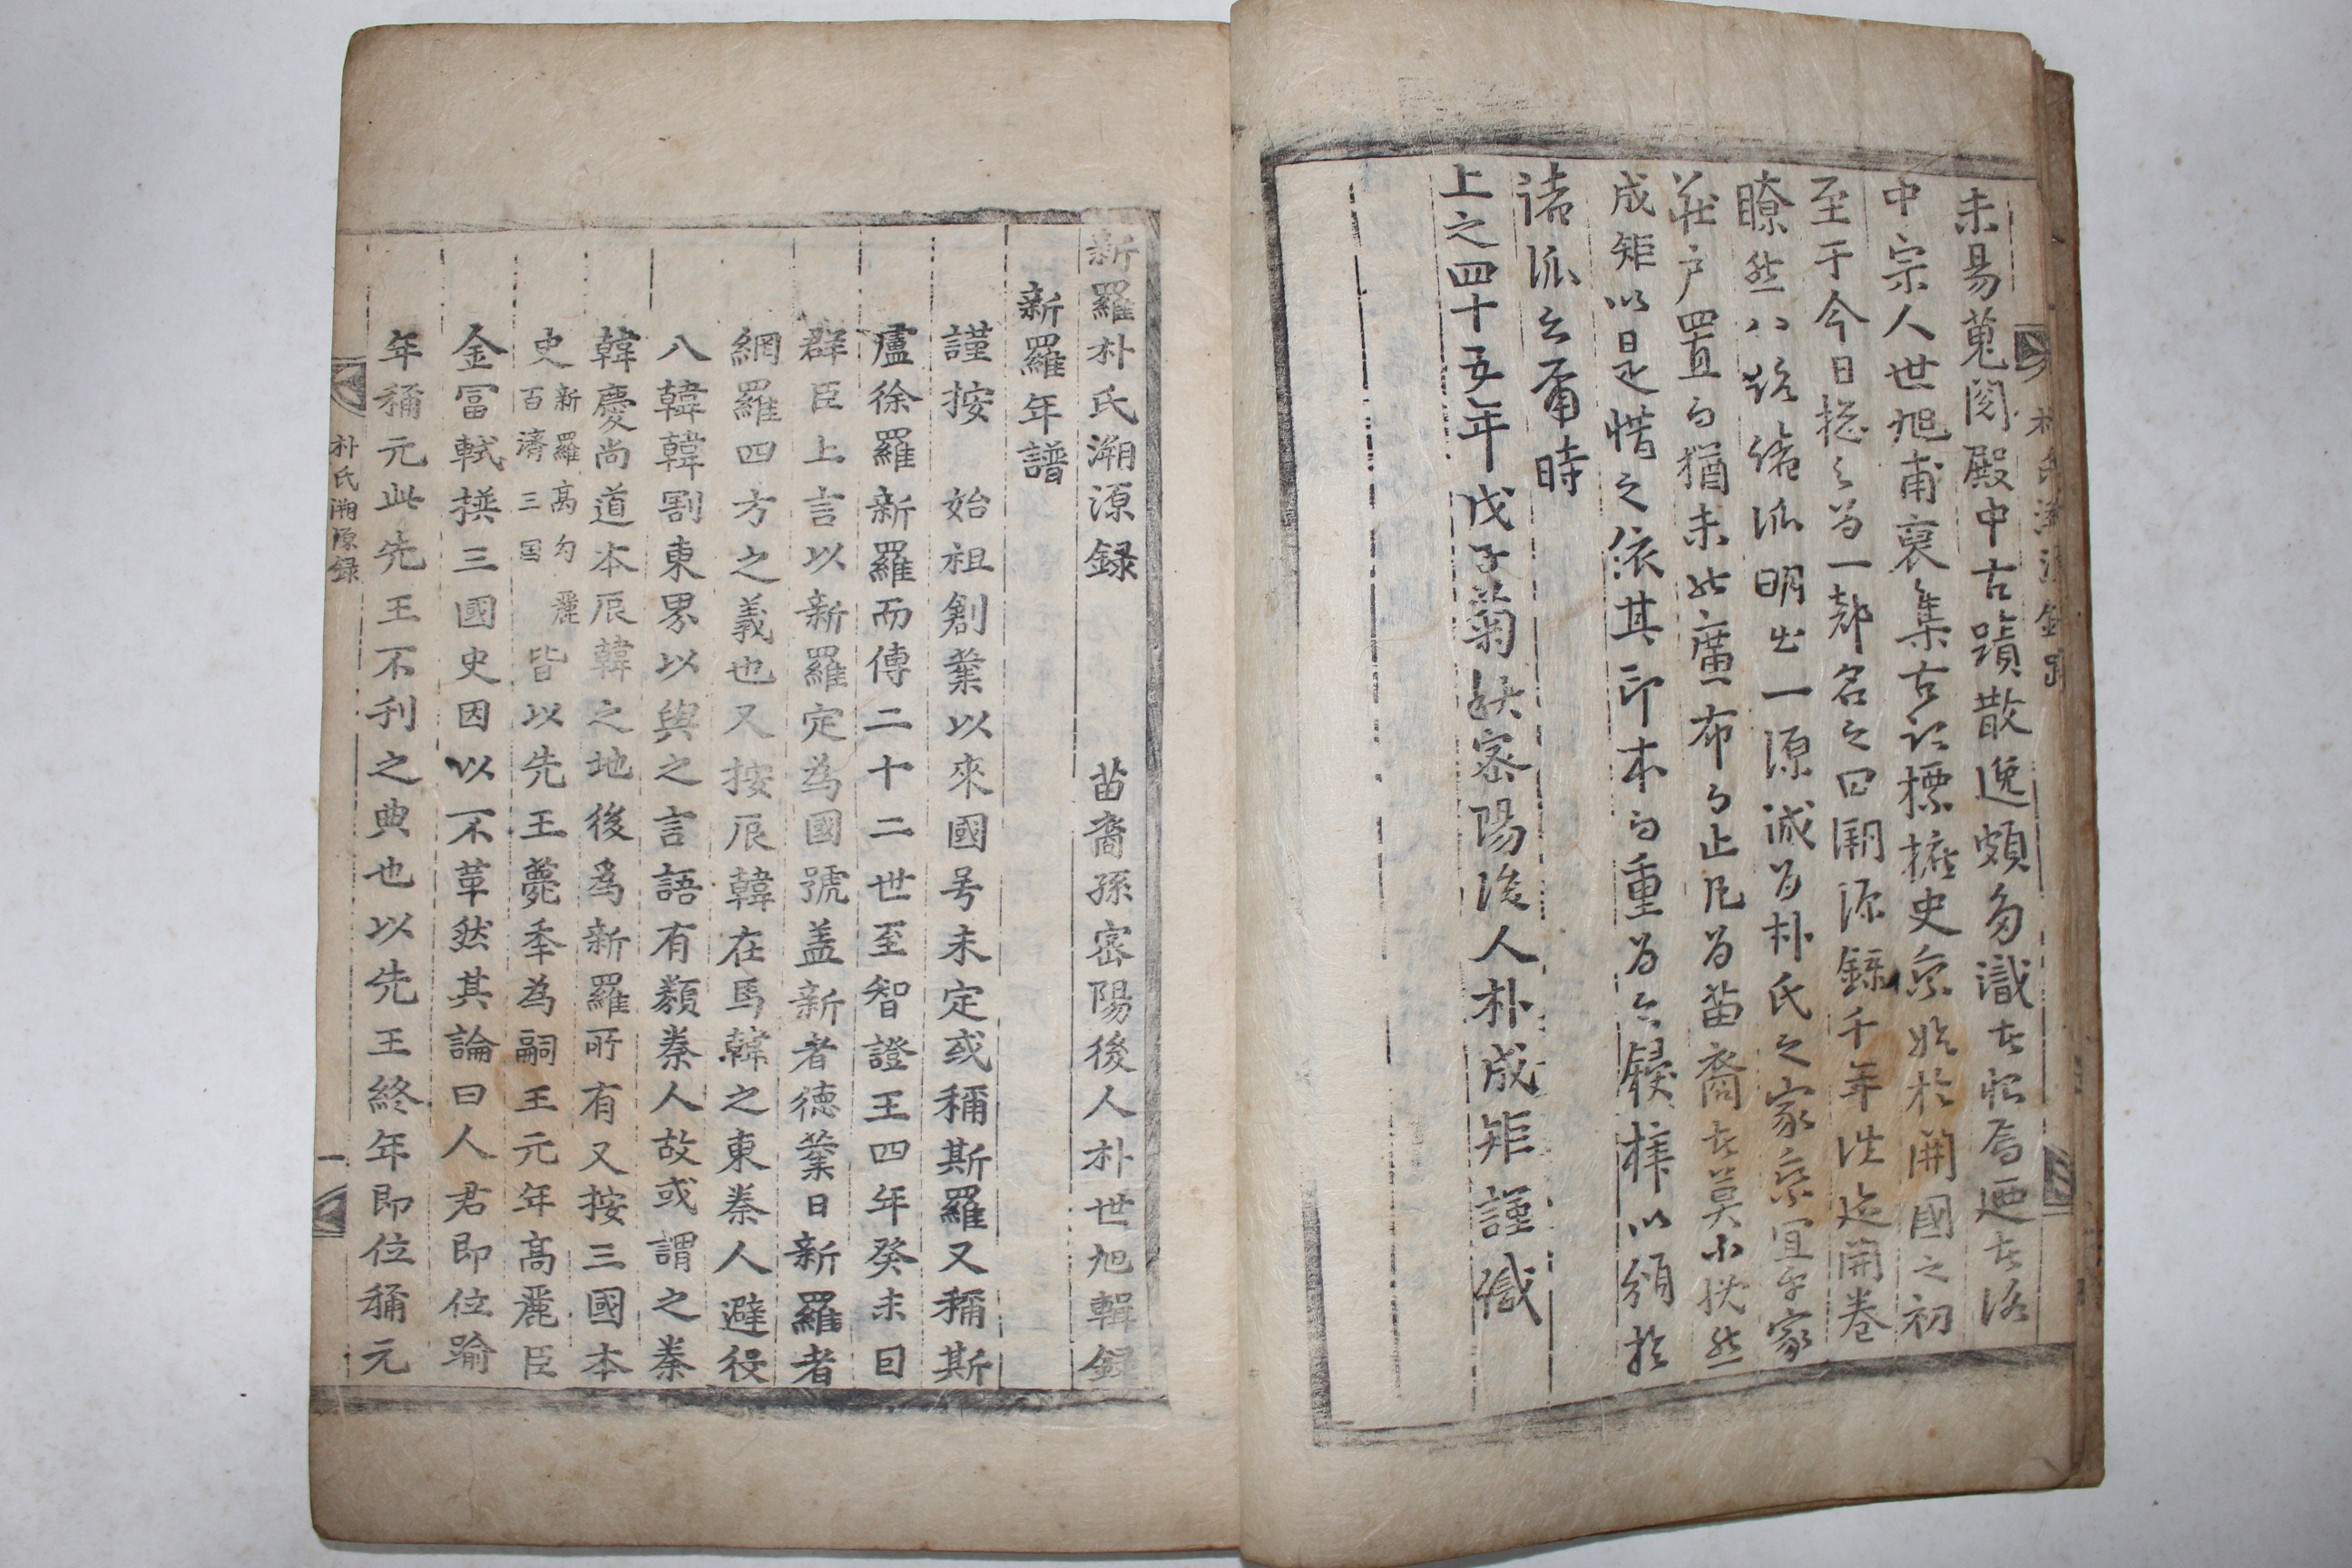 未易蒐閱殿中古蹟散逸頗多識者恨焉廼者洛
中宗人世旭甫裒集古記標摭史乘始於開國之初
至于今日摠之爲一部名之曰溯源錄千年往迹開卷
瞭然八路綿派明出一源誠爲朴氏之家乘宜乎家
莊戶置而猶未能廣布而止凡爲苗裔者莫不扼然
成矩以是惜之依其印本而重爲之鋟榟以頒於
諸派云爾時
上之四十五年戊子菊秋密陽後人朴成矩謹識
新羅朴氏溯源録 苗裔孫密陽後人朴世旭輯録
新羅年譜
謹按 始祖創業以來國号未定或稱斯羅又稱斯
盧徐羅新羅而傳二十二世至智證王四年癸未曰
群臣上言以新羅定為國號盖新者德業日新羅者
網羅四方之義也又按辰韓在馬韓之東秦人避役
八韓韓割東界以與之言語有類秦人故或謂之秦
韓慶尚道本辰韓之地後爲新羅所有又按三國本
史新羅高勾麗百濟三国皆以先王薨年為嗣王元年高麗臣
金冨軾撰三國史因以不革然其論曰人君即位踰
年稱元此先王不刊之典也以先王終年即位稱元
朴氏溯源録
一